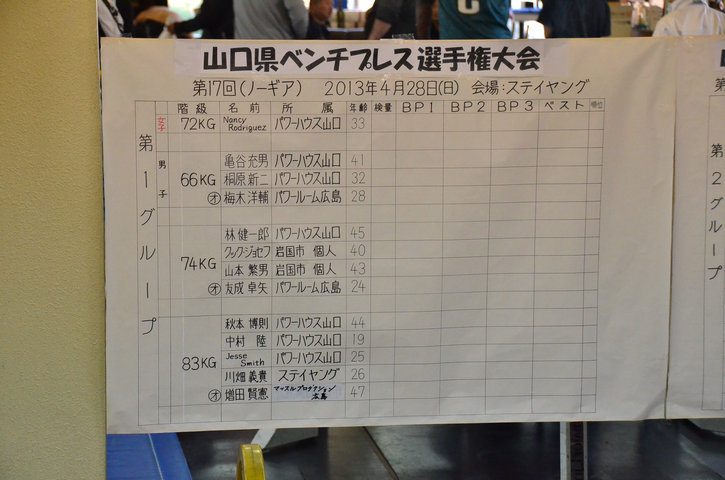 山口県ベンチプレス選手権大会
第17回(ノーギア) 2013年4月28日(日) 会場:ステイヤング
階級 名前 所属 年齢 検量 BP1 BP2 BP3 ベスト 順位
第1グループ
女子 72KG Nancy Rodriguez パワーハウス山口 33
男子
66KG
亀谷充男 パワーハウス山口 41
桐原新二 パワーハウス山口 32
オ 梅木洋輔 パワールーム広島 28
74KG
林健一郎 パワーハウス山口 45
クックジョセフ 岩国市 個人 40
山本繁男 岩国市 個人 43
オ 友成卓矢 パワールーム広島 24
83KG
秋本博則 パワーハウス山口 44
中村陸 パワーハウス山口 19
Jesse Smith パワーハウス山口 25
川畑義貴 ステイヤング 26
オ 増田賢憲 マッスルプロダクション広島 47
第2グループ